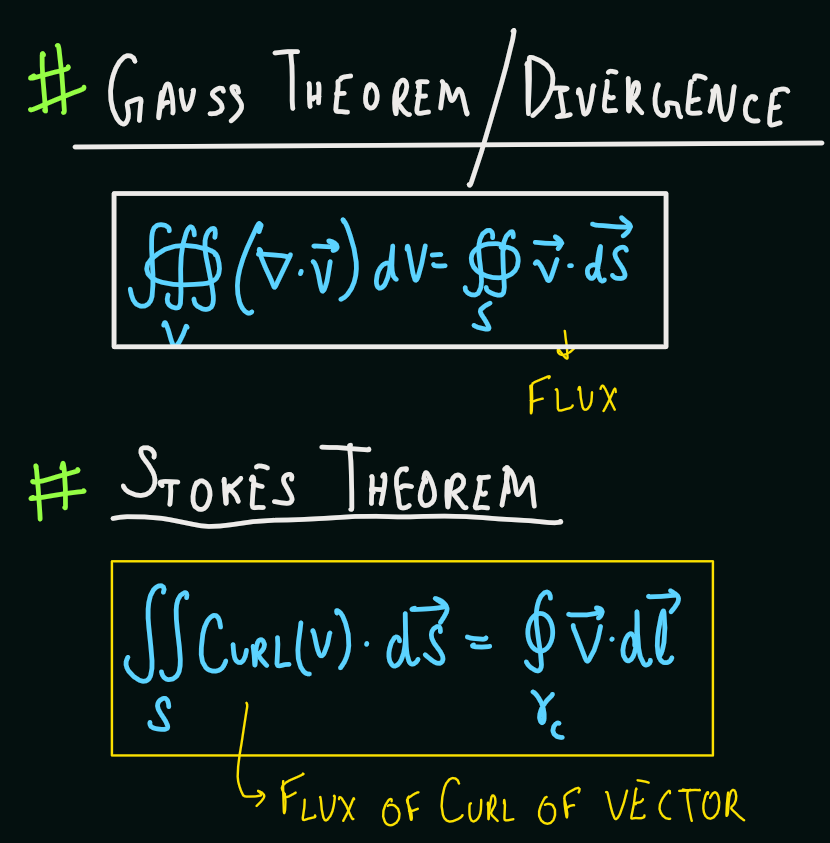 # GAUSS THEOREM / DIVERGENCE
∰_V (∇·v⃗) dV = ∯_S v⃗·dS⃗
↓
FLUX
# STOKES THEOREM
∬_S CURL(V)·dS⃗ = ∮_γc V⃗·dl⃗
↳ FLUX OF CURL OF VECTOR